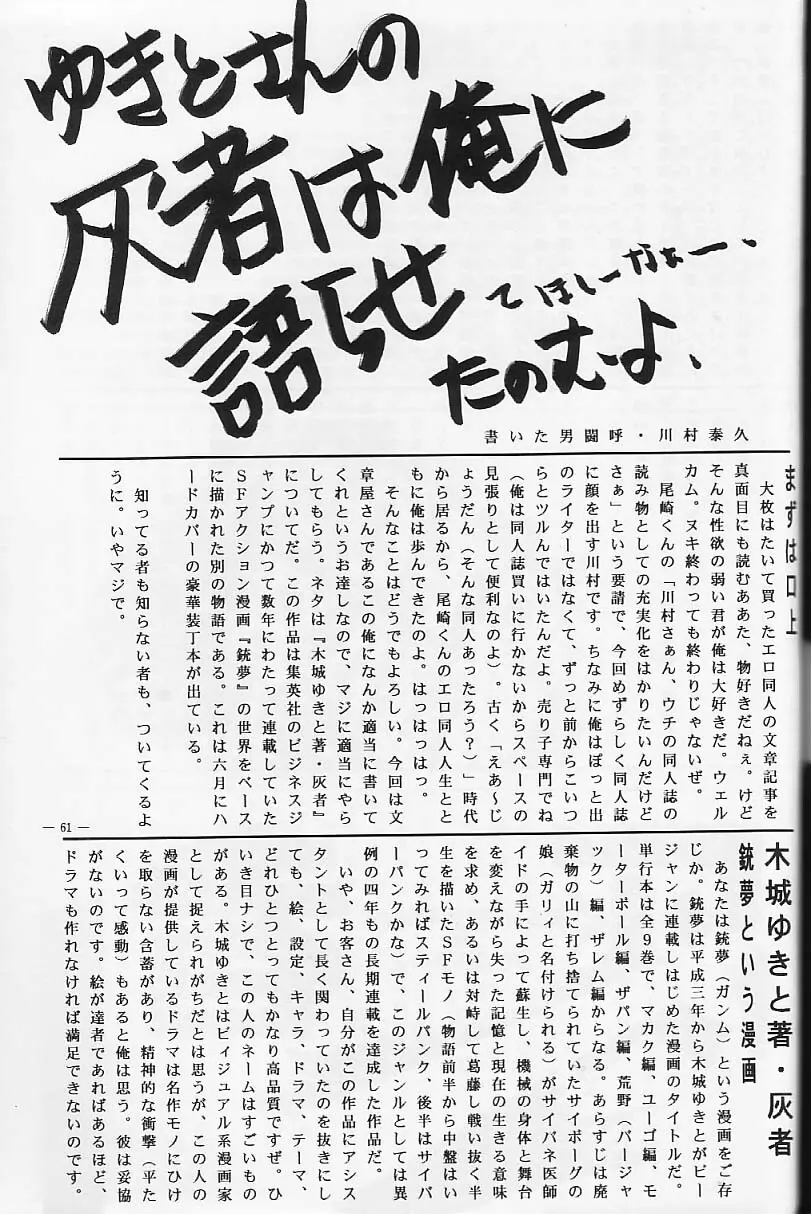 ゆきとさんの
灰者は俺に
語らせ
てほしーなァー、
たのむよ、
書いた男闘呼・川村泰久
まずは口上
　大枚はたいて買ったエロ同人の文章記事を
真面目にも読むああた、物好きだねぇ。けど
そんな性欲の弱い君が俺は大好きだ。ウェル
カム。ヌキ終わっても終わりじゃないぜ。
　尾崎くんの「川村さぁん、ウチの同人誌の
読み物としての充実化をはかりたいんだけど
さぁ」という要請で、今回めずらしく同人誌
に顔を出す川村です。ちなみに俺はぽっと出
のライターではなくて、ずっと前からこいつ
らとツルんではいたんだよ。売り子専門でね
（俺は同人誌買いに行かないからスペースの
見張りとして便利なのよ）。古く「えあ〜じ
ょうだん（そんな同人あったろう？）」時代
から居るから、尾崎くんのエロ同人人生とと
もに俺は歩んできたのよ。はっはっはっ。
　そんなことはどうでもよろしい。今回は文
章屋さんであるこの俺になんか適当に書いて
くれというお達しなので、マジに適当にやら
してもらう。ネタは『木城ゆきと著・灰者』
についてだ。この作品は集英社のビジネスジ
ャンプにかつて数年にわたって連載していた
ＳＦアクション漫画『銃夢』の世界をベース
に描かれた別の物語である。これは六月にハ
ードカバーの豪華装丁本が出ている。
　知ってる者も知らない者も、ついてくるよ
うに。いやマジで。
― 61 ―
木城ゆきと著・灰者
銃夢という漫画
　あなたは銃夢（ガンム）という漫画をご存
じか。銃夢は平成三年から木城ゆきとがビー
ジャンに連載しはじめた漫画のタイトルだ。
単行本は全９巻で、マカク編、ユーゴ編、モ
ーターボール編、ザパン編、荒野（バージャ
ック）編、ザレム編からなる。あらすじは廃
棄物の山に打ち捨てられていたサイボーグの
娘（ガリィと名付けられる）がサイバネ医師
イドの手によって蘇生し、機械の身体と舞台
を変えながら失った記憶と現在の生きる意味
を求め、あるいは対峙して葛藤し戦い抜く半
生を描いたＳＦモノ（物語前半から中盤はい
ってみればスティールパンク、後半はサイバ
ーパンクかな）で、このジャンルとしては異
例の四年もの長期連載を達成した作品だ。
　いや、お客さん、自分がこの作品にアシス
タントとして長く関わっていたのを抜きにし
ても、絵、設定、キャラ、ドラマ、テーマ、
どれひとつとってもかなり高品質ですぜ。ひ
いき目ナシで、この人のネームはすごいもの
がある。木城ゆきとはビィジュアル系漫画家
として捉えられがちだとは思うが、この人の
漫画が提供しているドラマは名作モノにひけ
を取らない含蓄があり、精神的な衝撃（平た
くいって感動）もあると俺は思う。彼は妥協
がないのです。絵が達者であればあるほど、
ドラマも作れなければ満足できないのです。